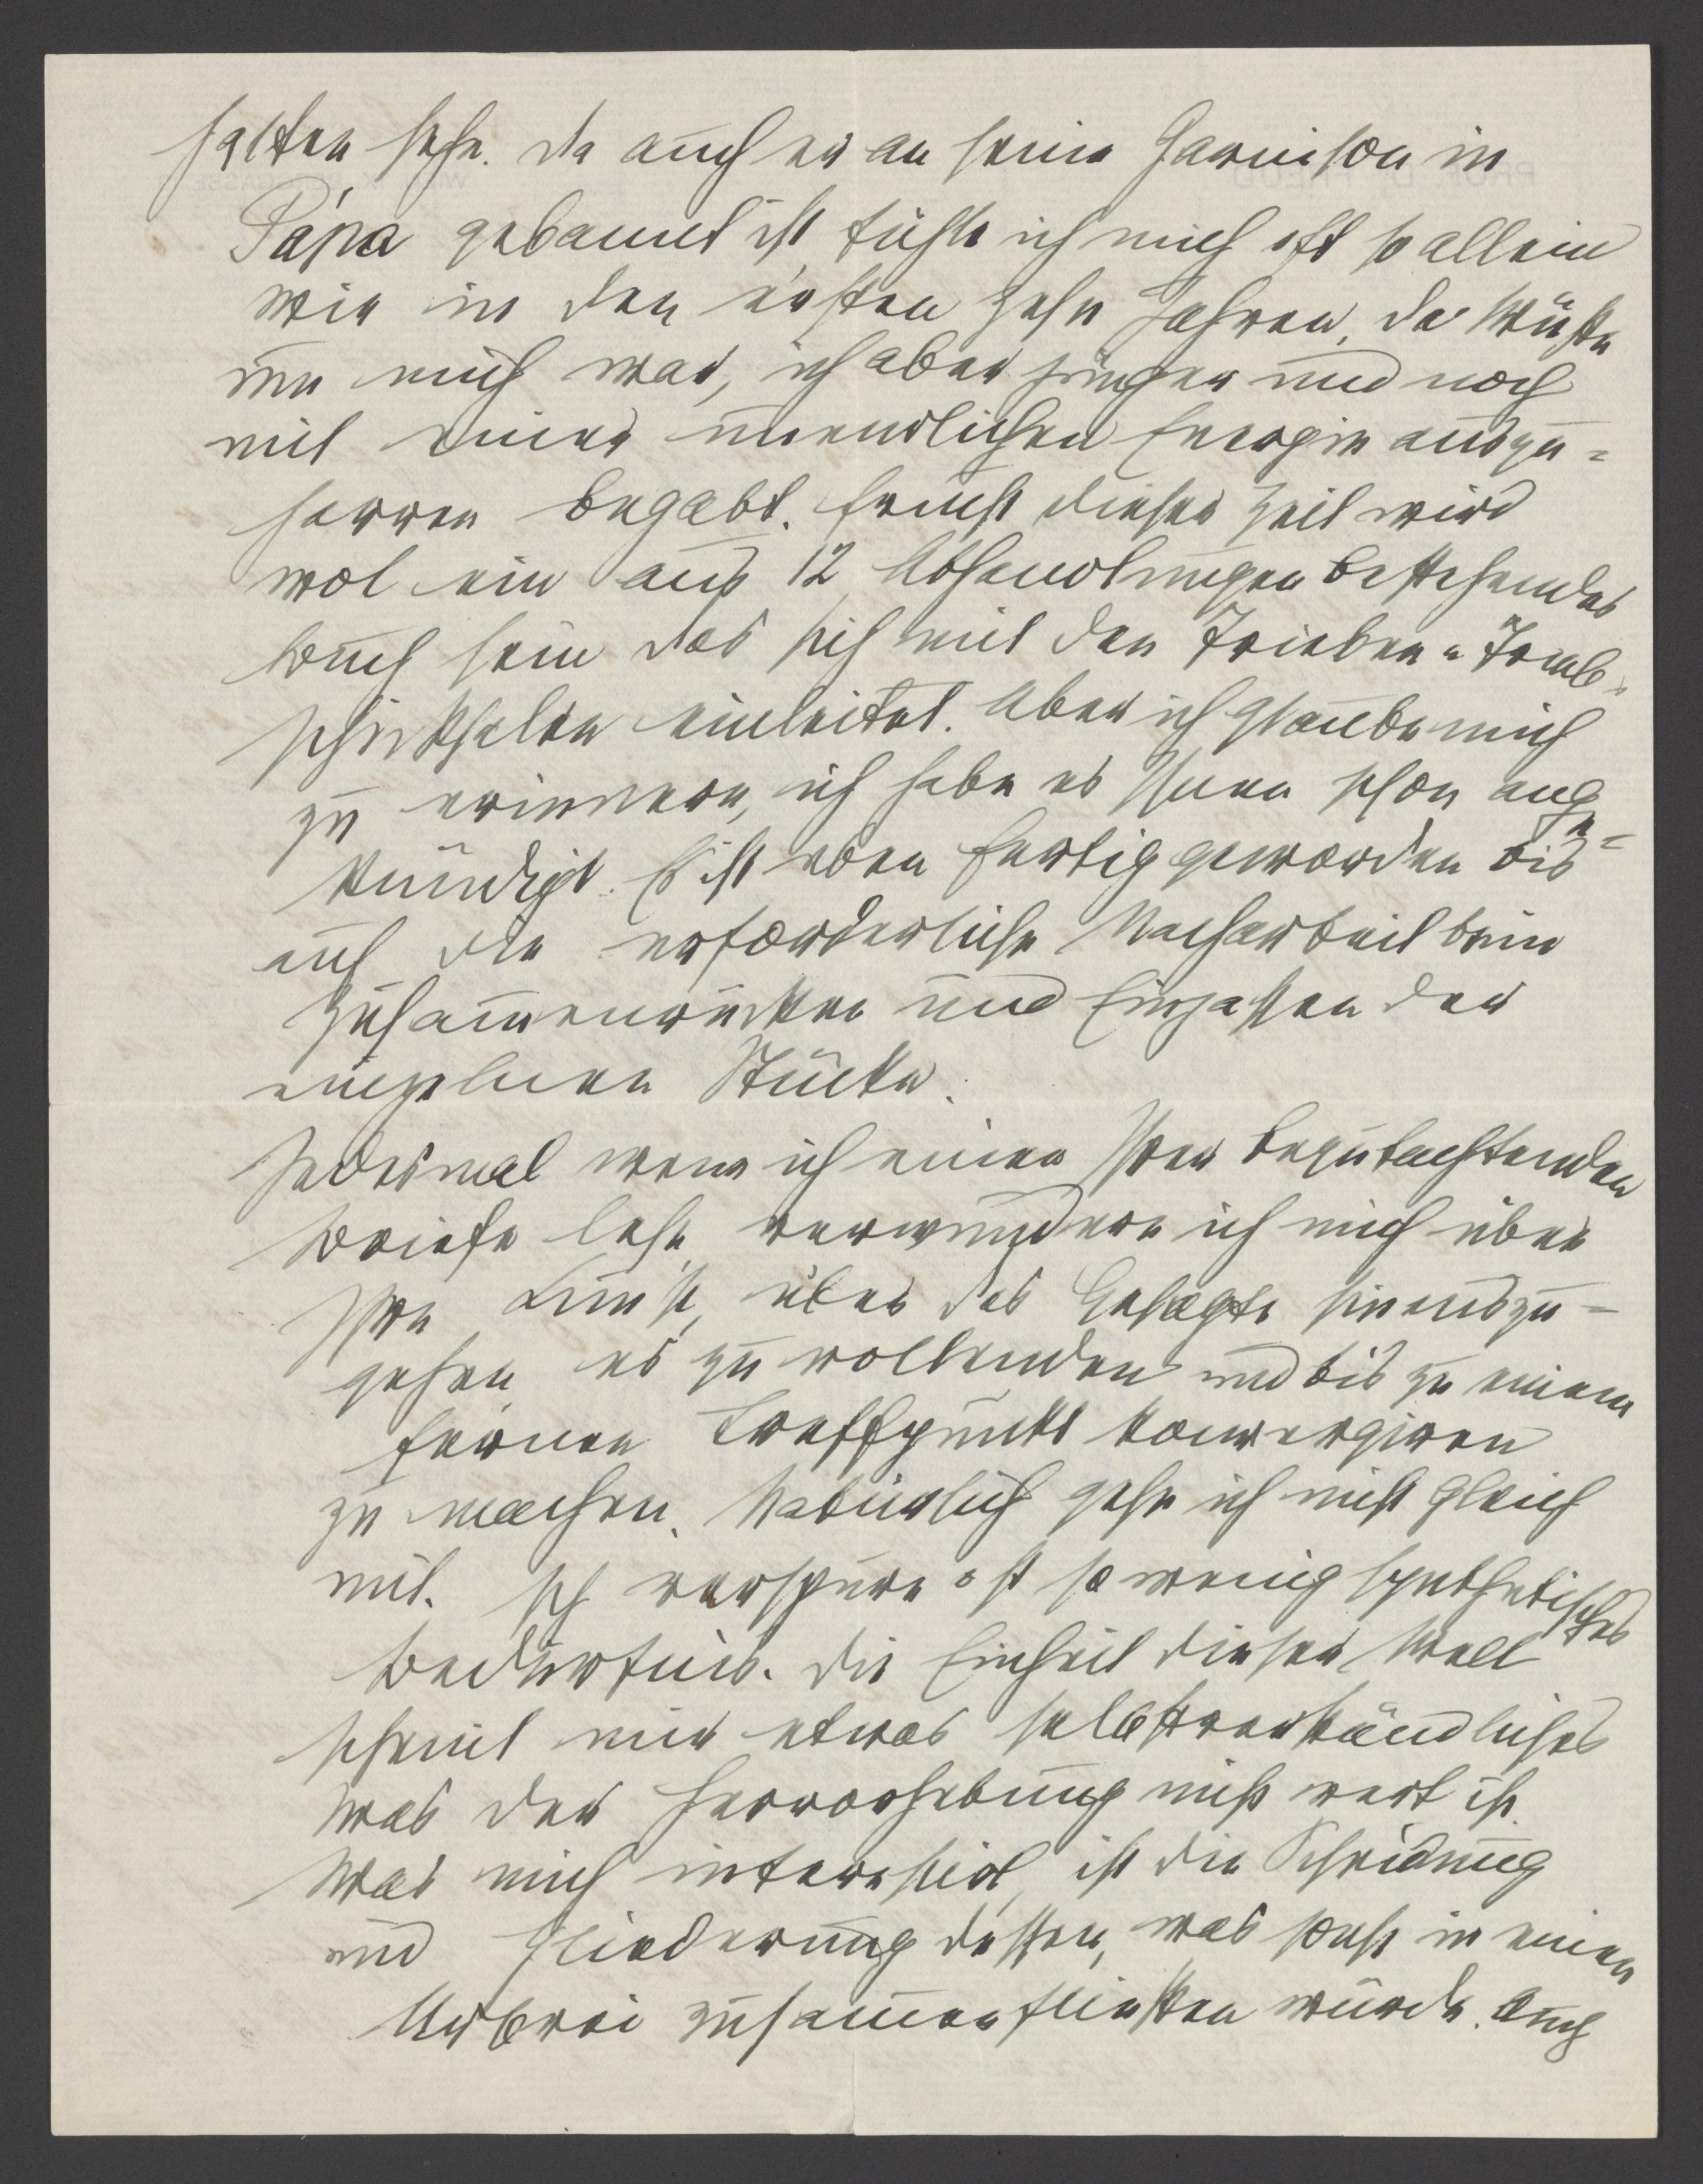 halten sehe. Da auch er an seine Garnison in
Pápa gebannt ist, fühle ich mich oft so allein
wie in den ersten zehn Jahren, da Wüste
um mich war, ich aber jünger und noch
mit einer unendlichen Energie auszu=
harren begabt. Frucht dieser Zeit wird
wol ein aus 12 Abhandlungen bestehendes
Buch sein das sich mit den Trieben u Trieb-
schicksalen einleitet. Aber ich glaube mich
zu erinnern, ich habe es Ihnen schon ange=
kündigt. Es ist eben fertig geworden bis
auf die erforderliche Nacharbeit beim
Zusammenrücken und Einpassen der
einzelnen Stücke.
Jedesmal wenn ich einen Ihrer begutachtenden
Briefe lese, verwundere ich mich über
Ihre Kunst, über das Gesagte hinauszu=
gehen, es zu vollenden und bis zu einem
fernen Treffpunkt konvergiren
zu machen. Natürlich gehe ich nicht gleich
mit. Ich verspüre oft so wenig synthetisches
Bedürfnis. Die Einheit dieser Welt
scheint mir etwas selbstverständliches
was der Hervorhebung nicht wert ist.
Was mich interessirt, ist die Scheidung
und Gliederung dessen, was sonst in einen
Urbrei zusammenfließen würde. Auch